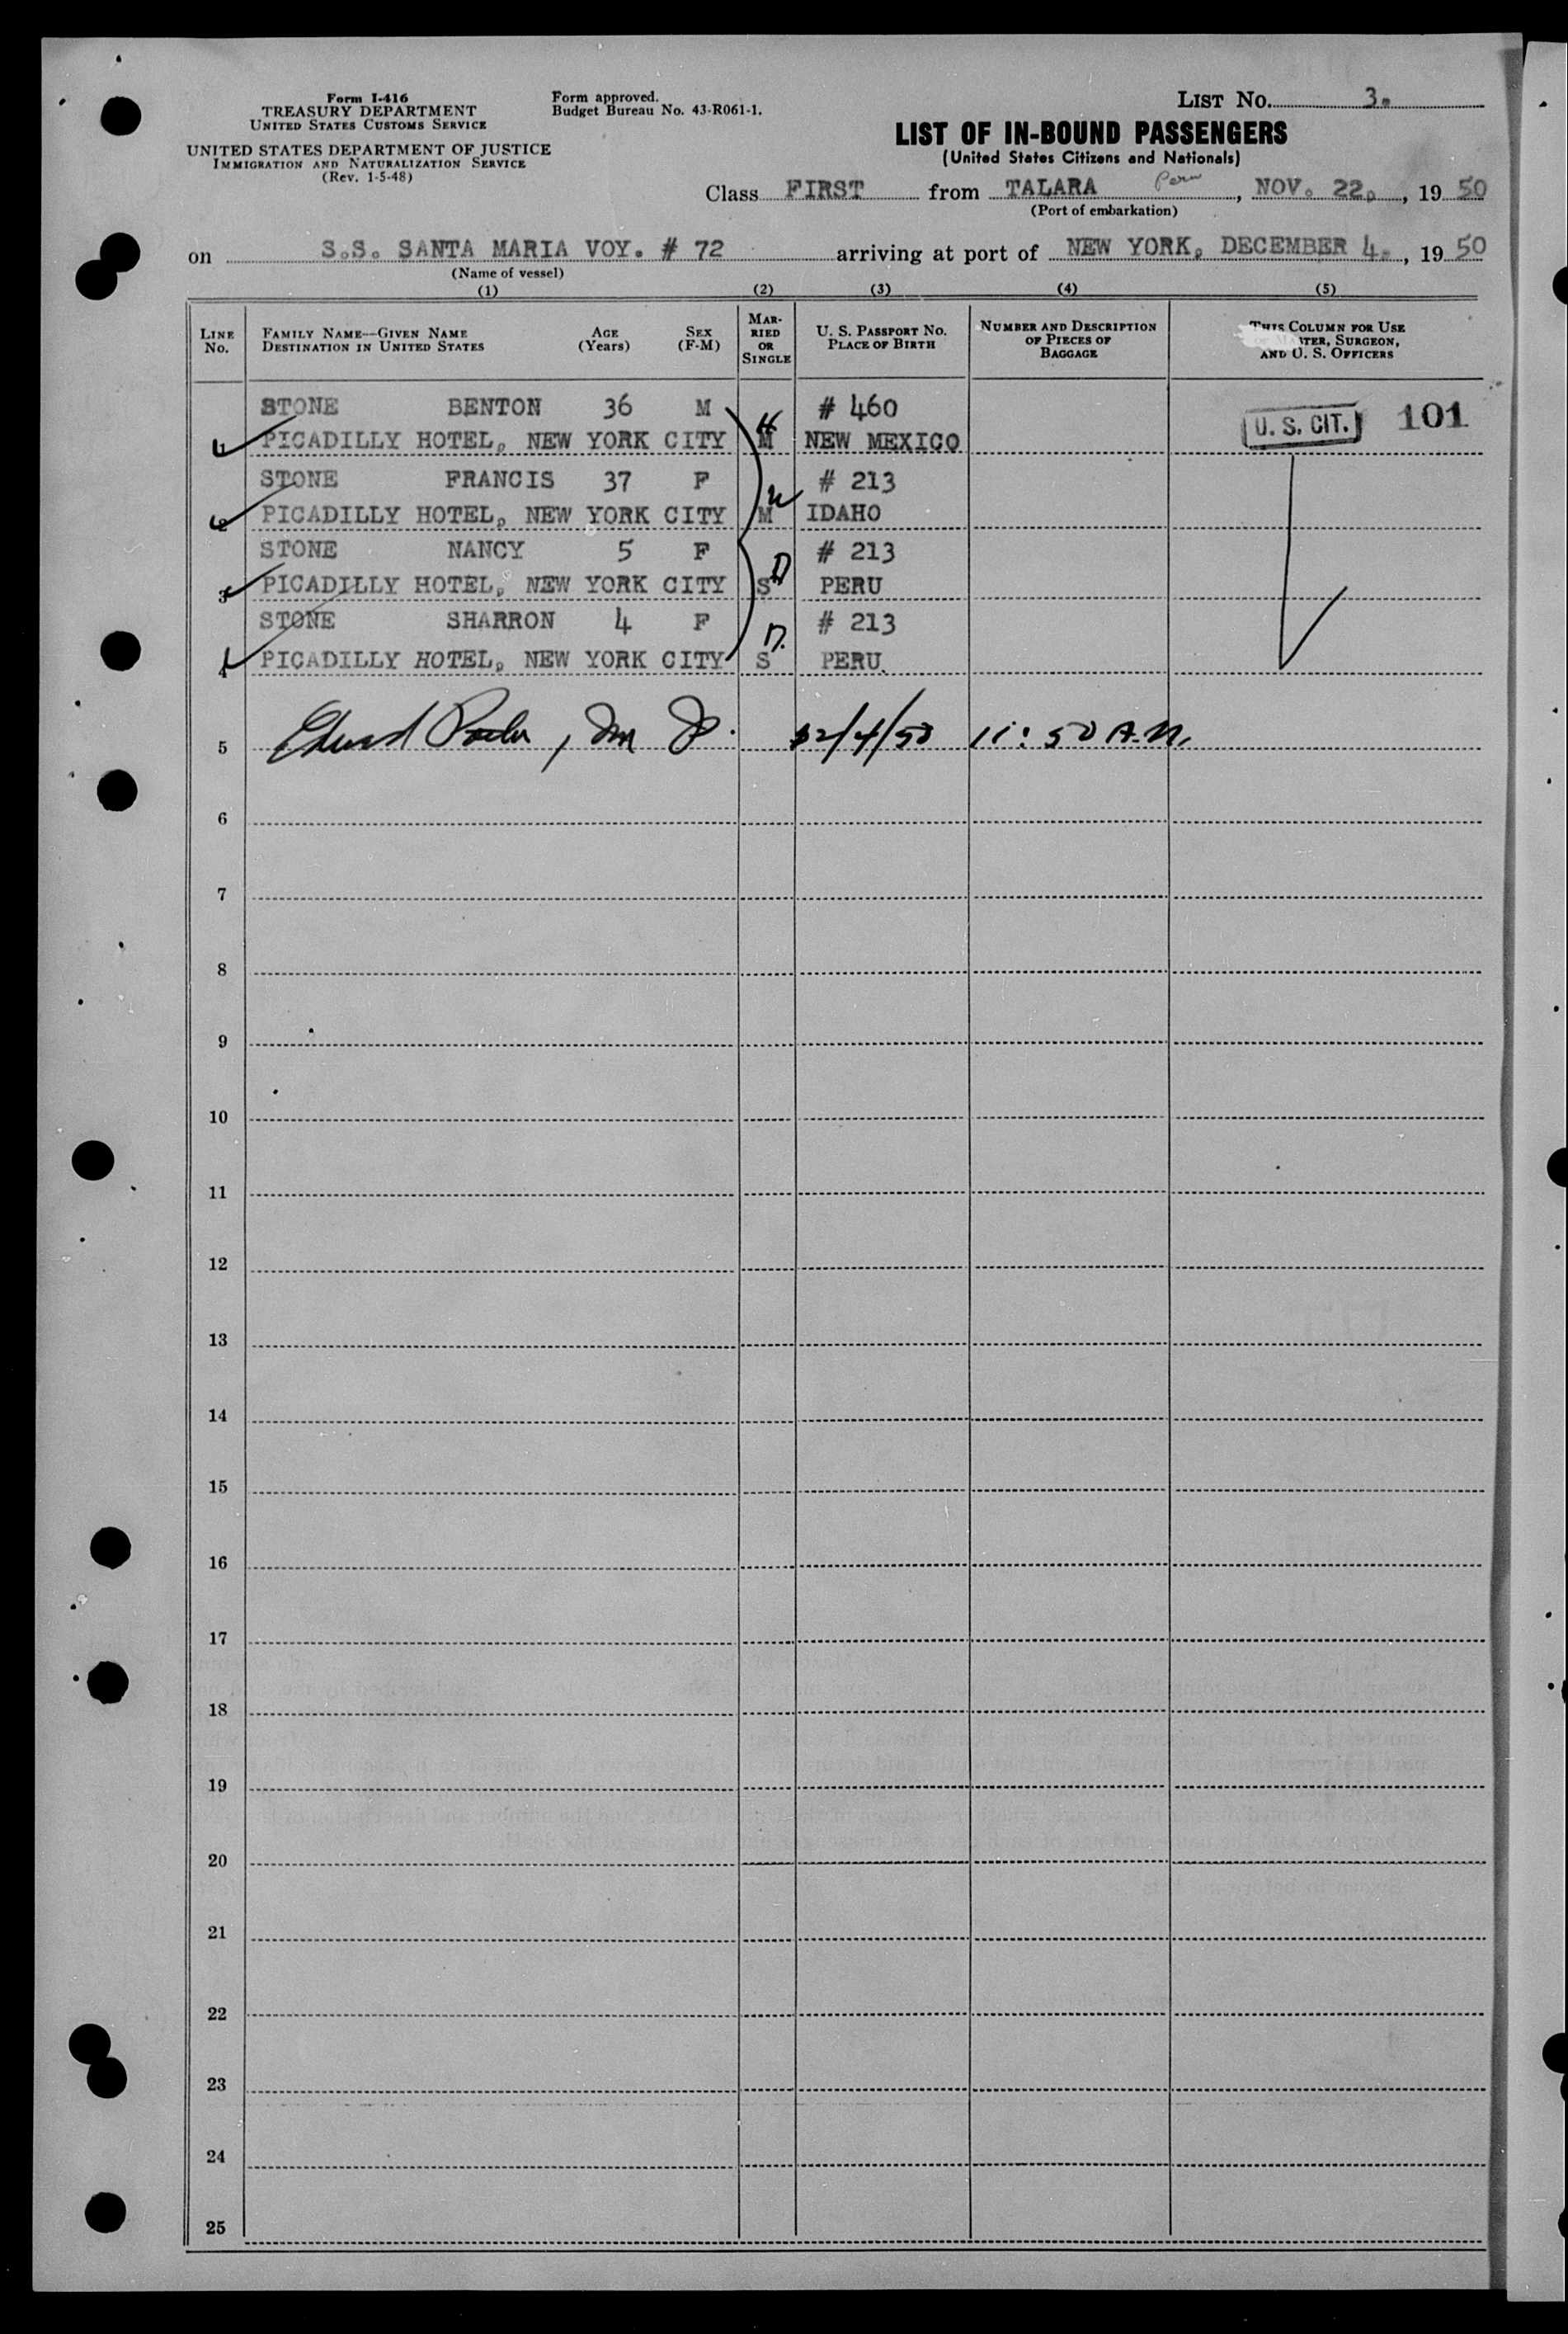 Form I-416
TREASURY DEPARTMENT
UNITED STATES CUSTOMS SERVICE
UNITED STATES DEPARTMENT OF JUSTICE
IMMIGRATION AND NATURALIZATION SERVICE
(Rev. 1-5-48)
Form approved.
Budget Bureau No. 43-R061-1.
LIST NO. 3.
LIST OF IN-BOUND PASSENGERS
(United States Citizens and Nationals)
Class FIRST from TALARA Peru, NOV. 22., 19 50
(Port of embarkation)
on S.S. SANTA MARIA VOY. # 72 arriving at port of NEW YORK, DECEMBER 4., 19 50
(Name of vessel)
(1) (2) (3) (4) (5)
LINE NO.
FAMILY NAME—GIVEN NAME
DESTINATION IN UNITED STATES
AGE (Years)
SEX (F-M)
MARRIED OR SINGLE
U. S. PASSPORT NO.
PLACE OF BIRTH
NUMBER AND DESCRIPTION
OF PIECES OF
BAGGAGE
THIS COLUMN FOR USE
OF MASTER, SURGEON,
AND U. S. OFFICERS
STONE BENTON 36 M # 460 U. S. CIT. 101
1 PICADILLY HOTEL, NEW YORK CITY M H NEW MEXICO
STONE FRANCIS 37 F # 213
2 PICADILLY HOTEL, NEW YORK CITY M W IDAHO
STONE NANCY 5 F # 213
3 PICADILLY HOTEL, NEW YORK CITY S D PERU
STONE SHARRON 4 F # 213
4 PICADILLY HOTEL, NEW YORK CITY S D. PERU.
5 12/4/50 11:50 A.M.
6
7
8
9
10
11
12
13
14
15
16
17
18
19
20
21
22
23
24
25